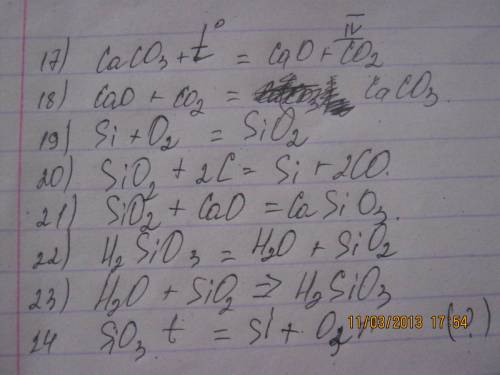 17) CaCO3 + t° = CaO + CO2 IV
18) CaO + CO2 = CaCO3.
19) Si + O2 = SiO2
20) SiO2 + 2C = Si + 2CO.
21) SiO2 + CaO = CaSiO3.
22) H2SiO3 = H2O + SiO2
23) H2O + SiO2 => H2SiO3
24 SiO3 t = Si + O2 (?)
11/03/2013 17:54